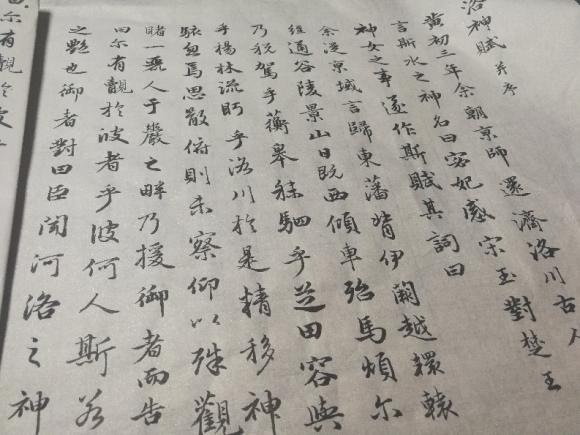 洛神賦 并序
黃初三年余朝京師還濟洛川古人
言斯水之神名曰宓妃感宋玉對楚王
神女之事遂作斯賦其詞曰
余從京域言歸東藩背伊闕越轘轅
經通谷陵景山日既西傾車殆馬煩尔
乃稅駕乎蘅皋秣駟乎芝田容與
乎楊林流眄乎洛川於是精移神
駭忽焉思散俯則未察仰以殊觀
睹一麗人于巖之畔乃援御者而告
曰尔有覿於彼者乎彼何人斯若
之艷也御者對曰臣聞河洛之神
尔有覿於